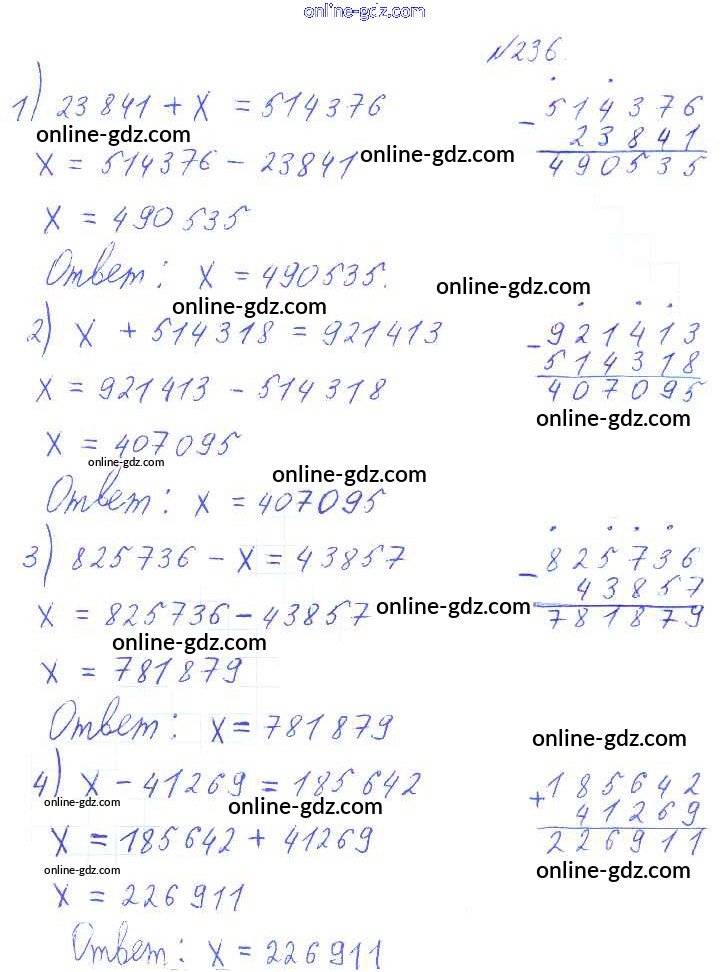 online-gdz.com
№236.
1) 23 841 + x = 514376
514376
online-gdz.com
- 23841
x = 514376 - 23841
online-gdz.com
490535
x = 490 535
Ответ: x = 490535.
online-gdz.com
online-gdz.com
2) x + 514318 = 921413
- 921413
514318
x = 921413 - 514318
407095
online-gdz.com
x = 407095
online-gdz.com
online-gdz.com
Ответ: x = 407095
3) 825736 - x = 43857
825736
- 43857
x = 825736 - 43857
online-gdz.com
781879
online-gdz.com
x = 781879
Ответ: x = 781879
online-gdz.com
4) x - 41269 = 185642
+ 185642
online-gdz.com
online-gdz.com
41269
x = 185642 + 41269
226911
online-gdz.com
online-gdz.com
x = 226911
Ответ: x = 226911